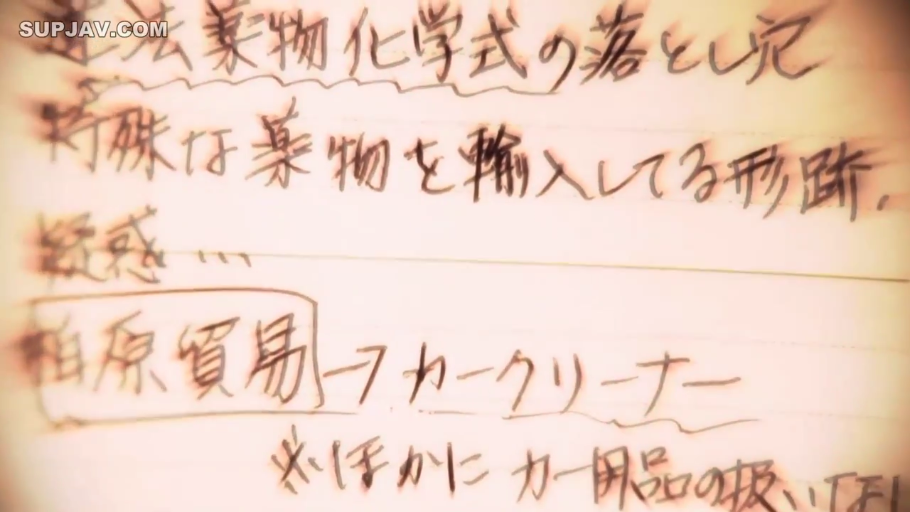 SUPJAV.COM
違法薬物化学式の落とし穴
特殊な薬物を輸入してる形跡.
疑惑…
柏原貿易→カークリーナー
※ほかにカー用品の扱いなし